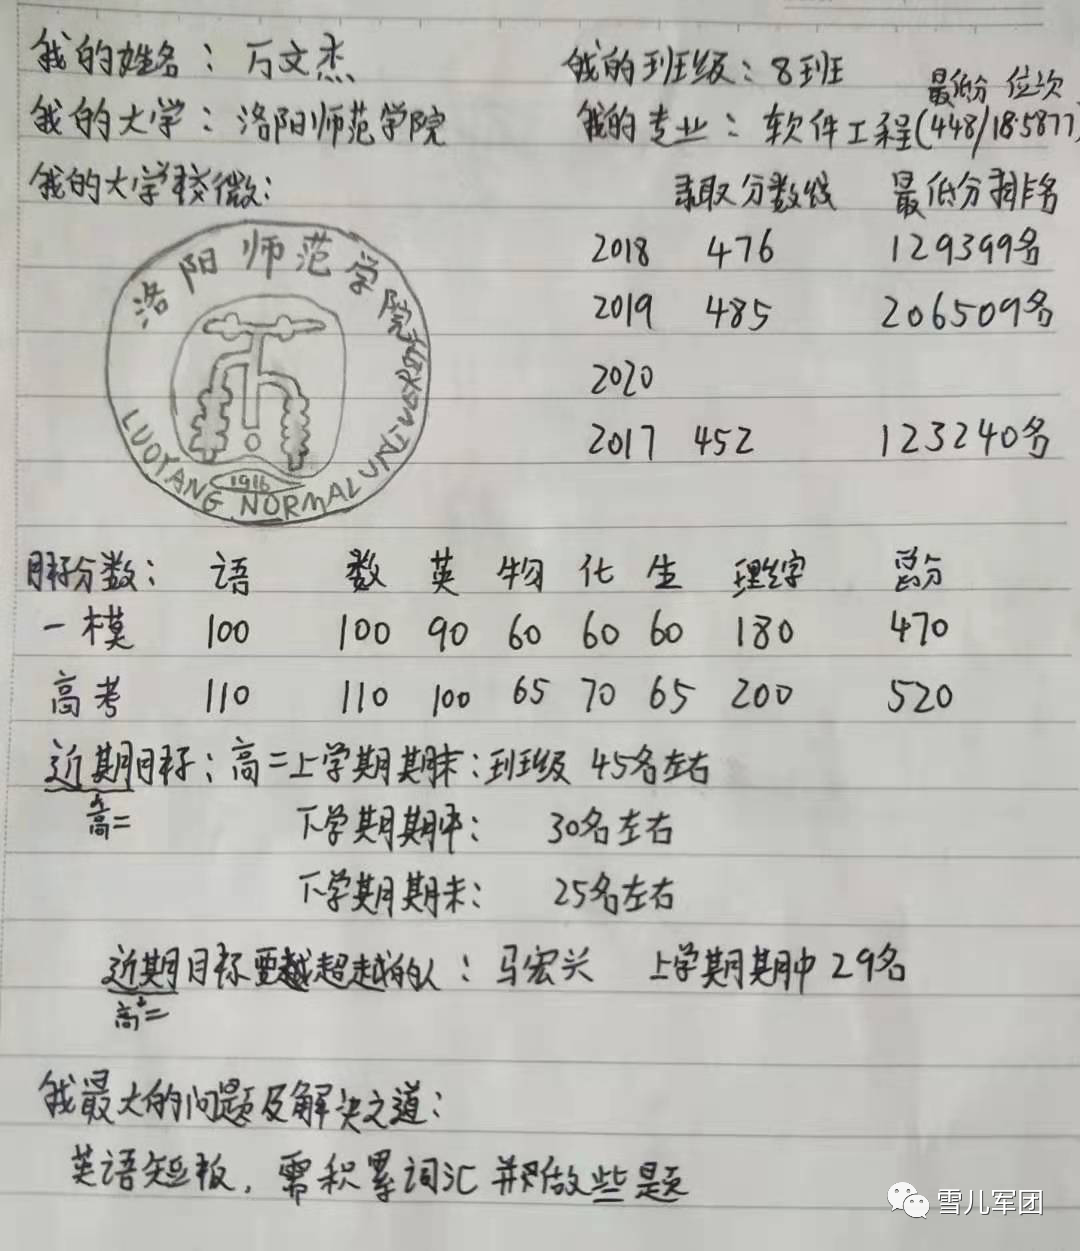 我的姓名：万文杰 我的班级：8班
最低分 位次
我的大学：洛阳师范学院 我的专业：软件工程(448/185877)
我的大学校微：
录取分数线 最低分排名
2018 476 129399名
2019 485 206509名
2020
2017 452 123240名
洛阳师范学院
LUOYANG NORMAL UNIVERSITY
1916
目标分数：语 数 英 物 化 生 理综 总分
一模 100 100 90 60 60 60 180 470
高考 110 110 100 65 70 65 200 520
近期目标：高二上学期期末：班级 45名左右
高二
下学期期中： 30名左右
下学期期末： 25名左右
近期目标要超越的人：马宏兴 上学期期中29名
高二
我最大的问题及解决之道：
英语短板，需积累词汇并做些题
雪儿军团